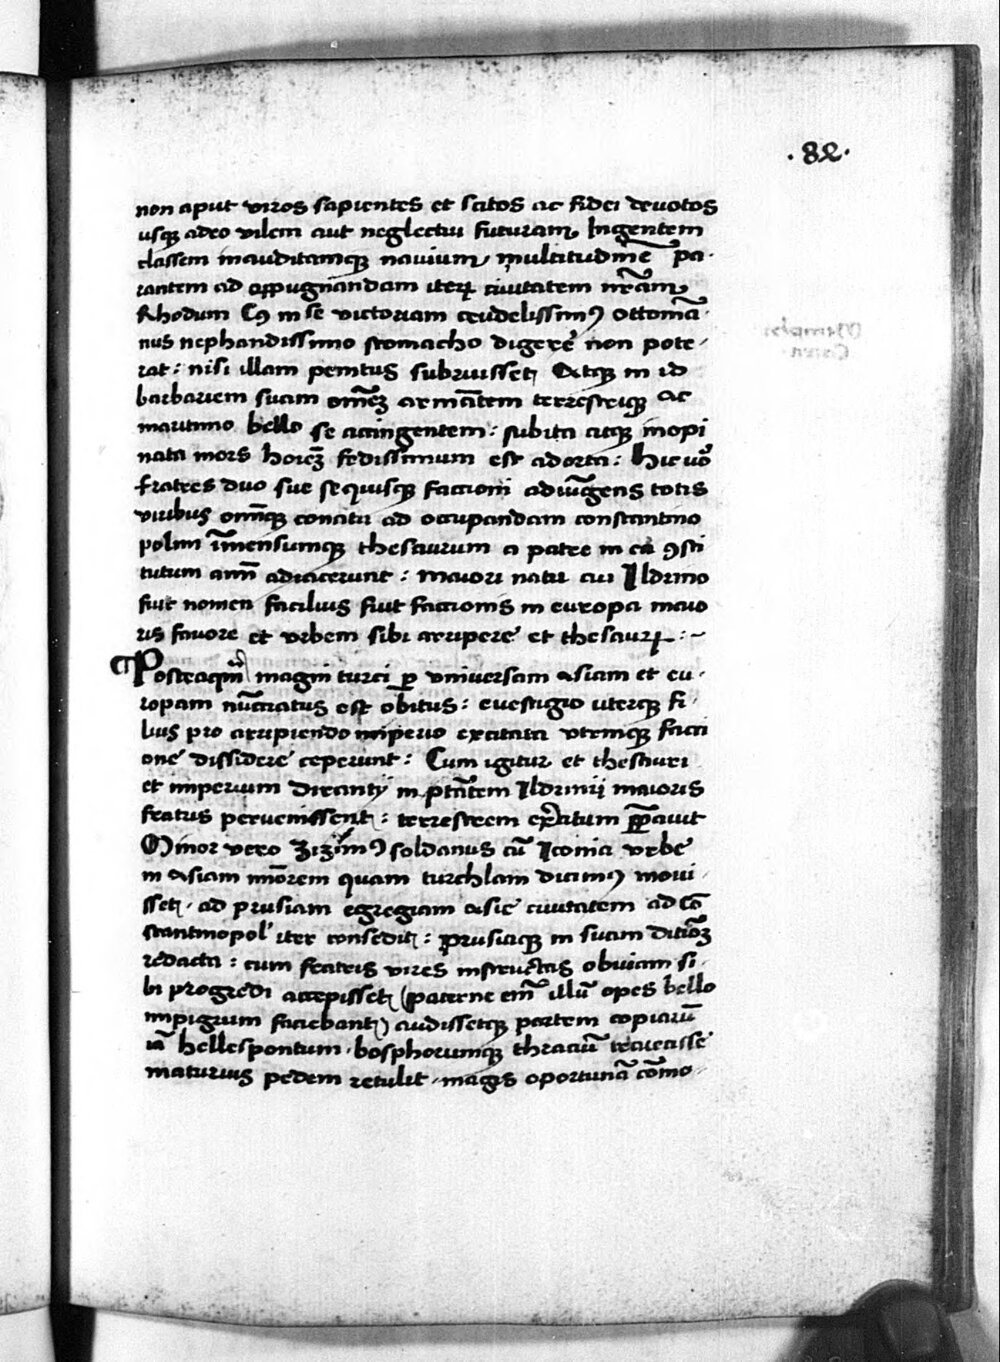 ·82·
non aput viros sapientes et scitos ac fidei devotos
usqꝫ adeo vilem aut neglectui futuram, Ingentem
classem inauditamqꝫ navium, multitudinē pa-
rantem ad oppugnandam iteꝝ civitatem nr̄am,
Rhodum Cꝙ in se victoriam crudelissimꝰ ottomā-
nus nephandissimo stomacho digere non pote-
rat: nisi illam penitus subruissetꝫ Atqꝫ in id
barbariem suam omēꝫ armātem terrestriqꝫ ac
maritimo bello se accingentem: subita atqꝫ inopi
nata mors hoīeꝫ fedissimum est adorta: Hic vo᷃
fratres duo sue se quisqꝫ factioni adiūgens totis
viribus omniqꝫ conatu ad occupandam constantino
polim īmensumqꝫ thesaurum a patre in ea ꝯsti
tutum anī adiacerunt: maiori natu cui Ildrino
fuit nomen facilius fuit factionis in europa maio
ris favore et urbem sibi arripere et thesauꝝ:~
¶ Posteaqm̄ magni turci ꝑ universam asiam et eu-
ropam nūctiatus est obitus: evestigio uterqꝫ fi-
lius pro arripiendo imperio excitata utrimqꝫ facti
one dissidere ceperunt: Cum igitur et thesauri
et imperium in ptātem Ildrinij maioris
fratris pervenissentꝫ: terrestrem exꝛ̄citum ꝑꝑavit
Minor vero Zizīmꝰ soldanus cū Iconia urbe
in asiam mīorem quam turchiam dicimꝰ movi-
ssetꝫ. ad prusiam egregiam asie civitatem ad cō
stantinopol' iter conseditꝫ: prusiaqꝫ in suam ditiōeꝫ
redacta: cum fratris vires instructas obviam si-
bi progredi accepissetꝫ (paterne em̄ illū opes bello
impigrum faciebantꝫ) audissetqꝫ partem copiarū
iā hellespontum. bosphorumqꝫ thraciū traiecisse
maturius pedem retulit. magis oportunā cōmo-